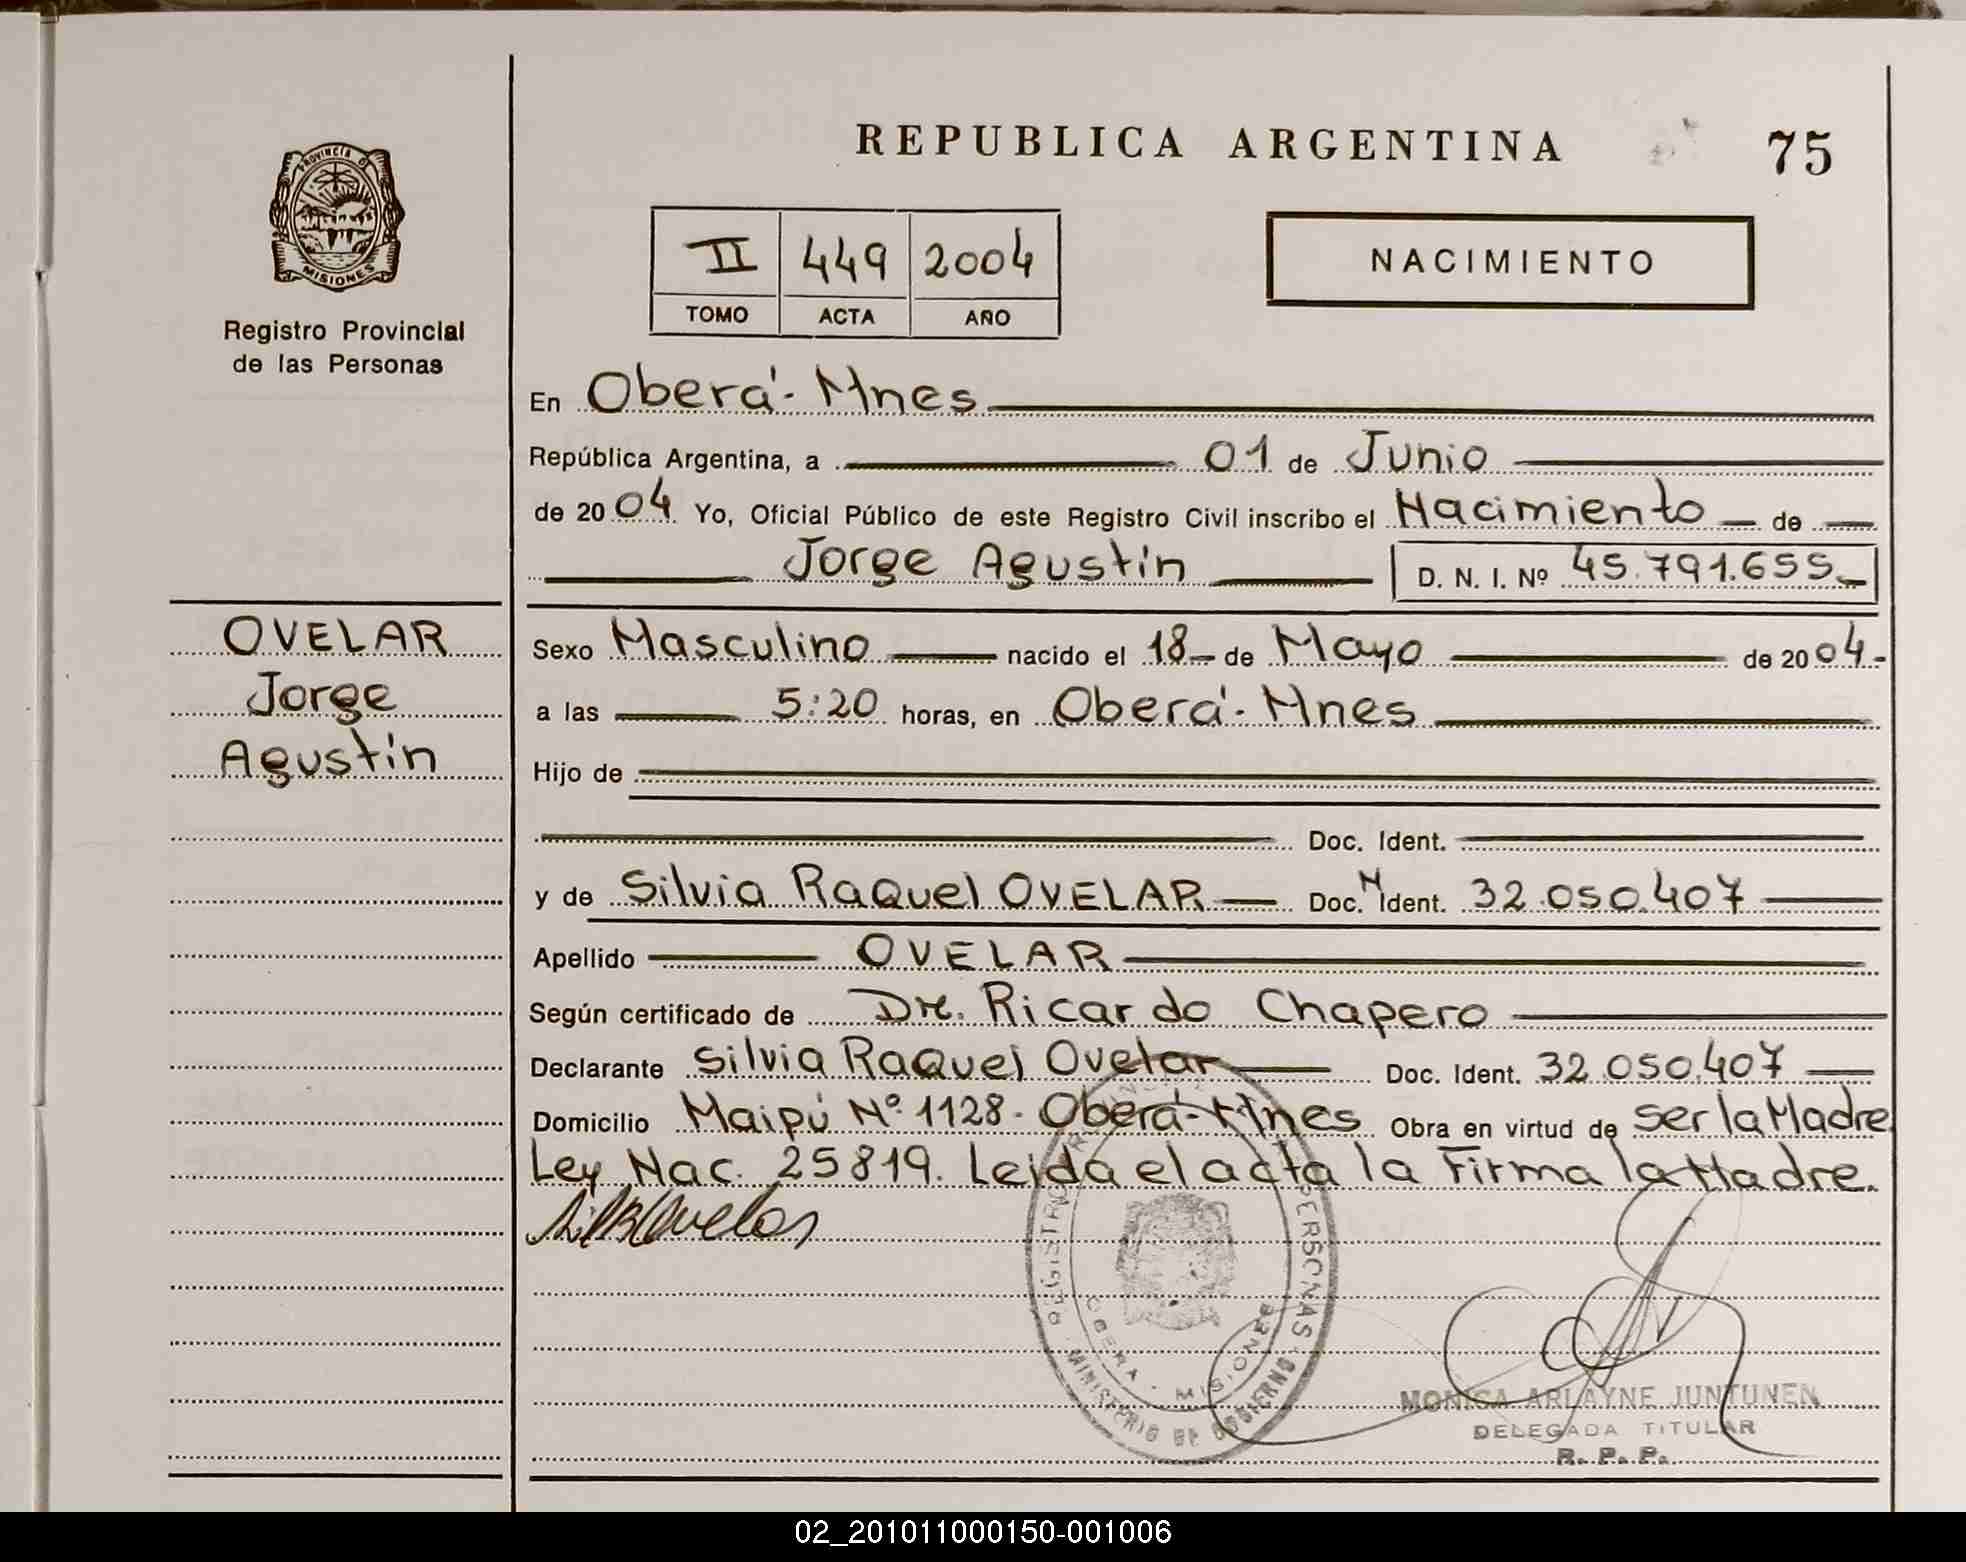 REPUBLICA ARGENTINA
75
PROVINCIA D
MISIONES
Registro Provincial
de las Personas
II 449 2004
TOMO ACTA AÑO
NACIMIENTO
En Oberá - Mnes
República Argentina, a 01 de Junio
de 2004 Yo, Oficial Público de este Registro Civil inscribo el Nacimiento de
Jorge Agustín D. N. I. Nº 45.791.655
OVELAR
Jorge
Agustín
Sexo Masculino nacido el 18 de Mayo de 2004
a las 5:20 horas, en Oberá - Mnes
Hijo de
Doc. Ident.
y de Silvia Raquel OVELAR Doc. N Ident. 32.050.407
Apellido OVELAR
Según certificado de Dr. Ricardo Chapero
Declarante Silvia Raquel Ovelar Doc. Ident. 32.050.407
Domicilio Maipú Nº 1128 - Oberá - Mnes Obra en virtud de ser la Madre
Ley Nac. 25819. Leida el acta la Firma la Madre.
REGISTRO PERSONAS
OBERA - MISIONES
MINISTERIO DE GOBIERNO
MONICA ARLAYNE JUNTUNEN
DELEGADA TITULAR
R. P. P.
02_201011000150-001006